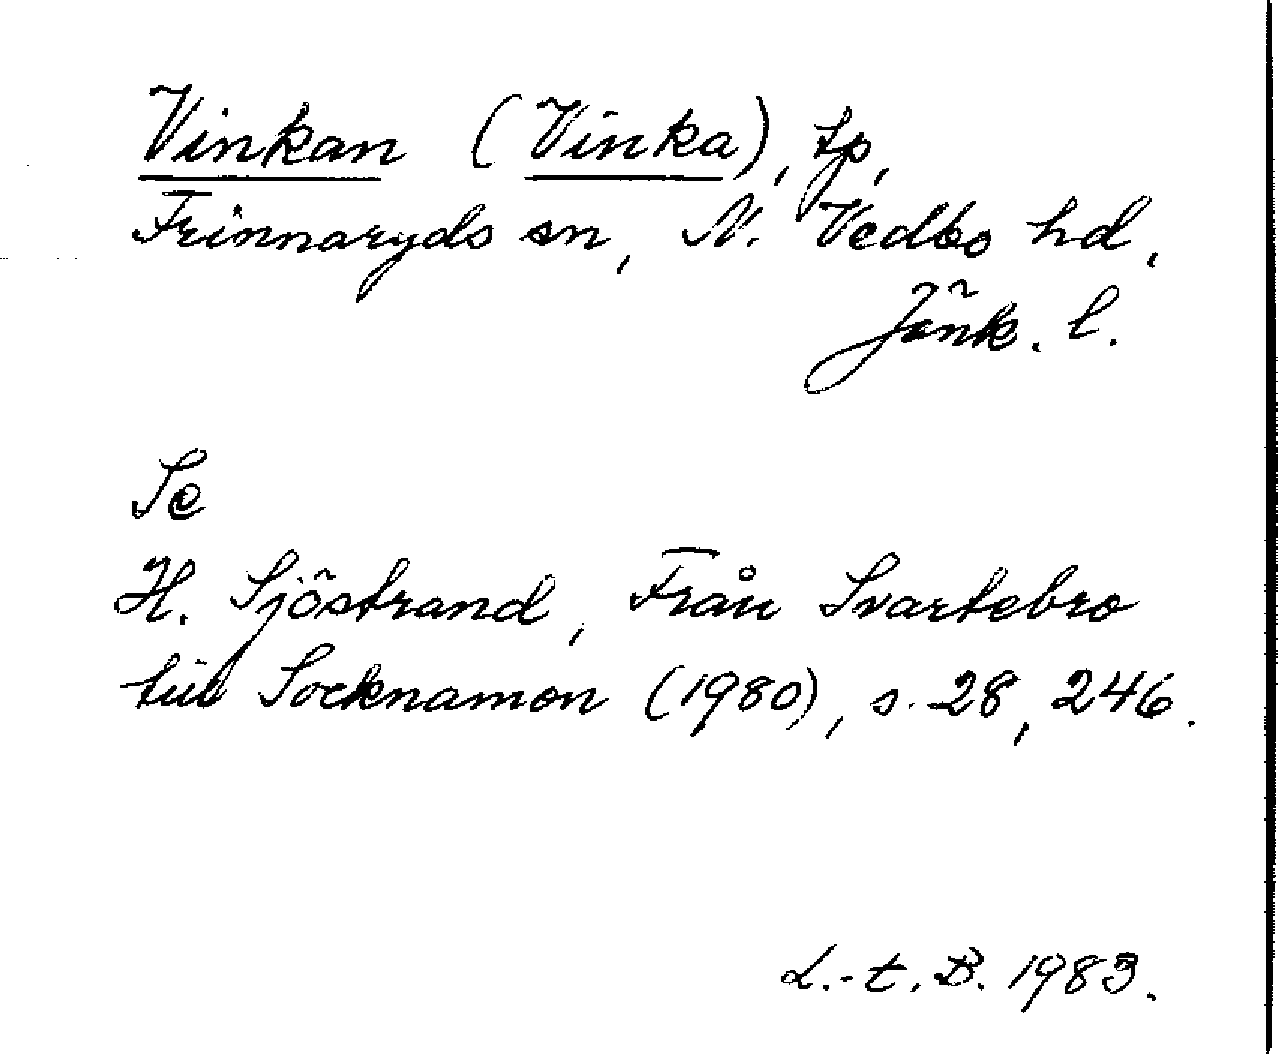 Vinkan (Vinka), tp,
Frinnaryds sn, N. Vedbo hd,
Jönk. l.
Se
H. Sjöstrand, Från Svartebro
till Socknamon (1980), s. 28, 246.
L.-t. B. 1983.